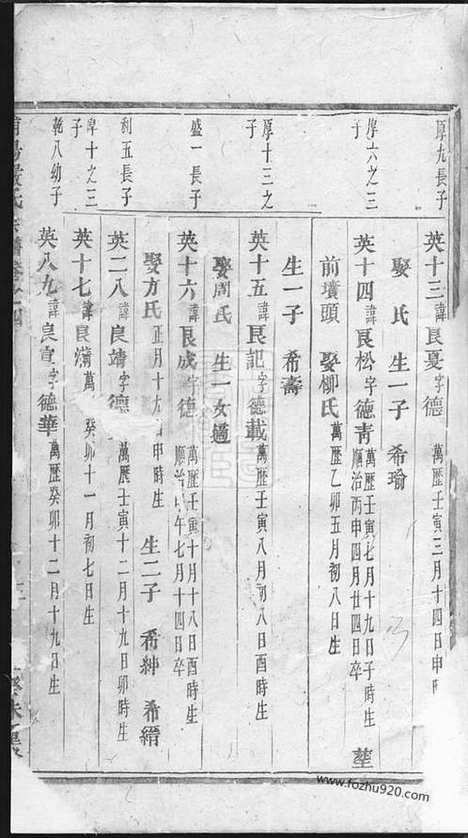 厚九長子
英十三諱良夏字德 萬歷壬寅三月十四日申時
娶 氏 生一子 希瑜
厚六之三子
英十四諱良松字德青 萬歷壬寅七月十九日子時生 順治丙申四月廿四日卒 塟
前墳頭 娶柳氏 萬歷乙卯五月初八日生
生一子 希壽
厚十三之子
英十五諱良記字德載 萬歷壬寅八月初八日酉時生
娶周氏 生一女適
盛一長子
英十六諱良成字德 萬歷壬寅十月十八日酉時生 順治 午七月十四日卒
娶方氏 正月十九 申時生 生二子 希紳 希縉
利五長子
英二八諱良靖字德 萬歷壬寅十二月十九日卯時生
諱十之三
英十七諱良 萬 癸卯十一月初七日生
乾八幼子
英八九諱良 字德華 萬歷癸卯十二月十九日生
氏宗譜卷之四
www.fozhu920.com